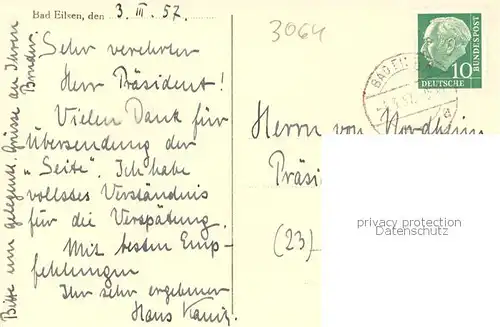 Bad Eilsen, den 3. III. 57.
Sehr verehrter
Herr Präsident!
Vielen Dank für
Übersendung der
„Seite". Ich habe
vollstes Verständnis
für die Verspätung.
Mit besten Emp-
fehlungen
Ihr sehr ergebener
Hans
Bitte um gelegentl. Grüsse an Ihren
Bruder.
3064
BAD EILSEN
a
10
DEUTSCHE
BUNDESPOST
Herrn von Nordheim
Präsi
(23)
privacy protection
Datenschutz